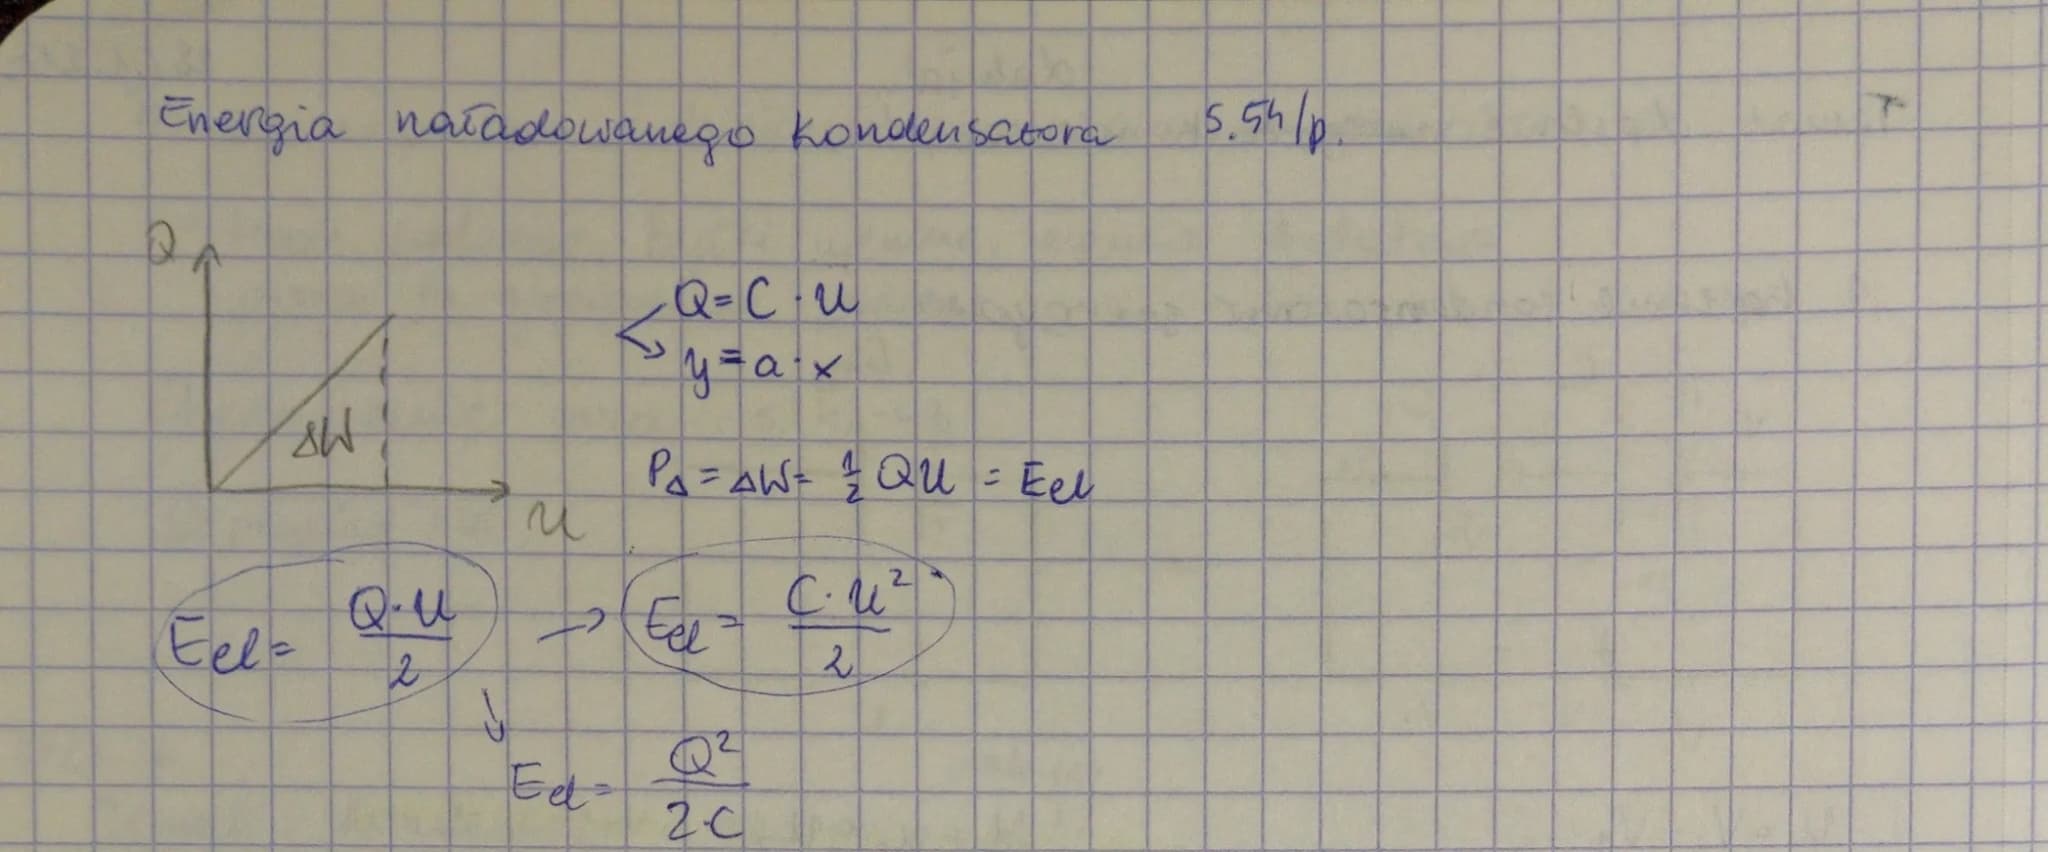 Energia naładowanego kondensatora s.54/p.
Q
Q = C · U
y = a · x
ΔW
P△ = ΔW = 1/2 QU = Eel
U
Eel = Q·U/2 → Eel = C·U²/2
↓
Eel = Q²/2·C